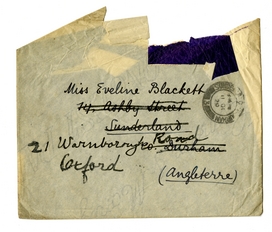 Miss Eveline Blackett
14, Ashby Street
Sunderland
21 Warnborough Road
Co. Durham
Oxford
(Angleterre)